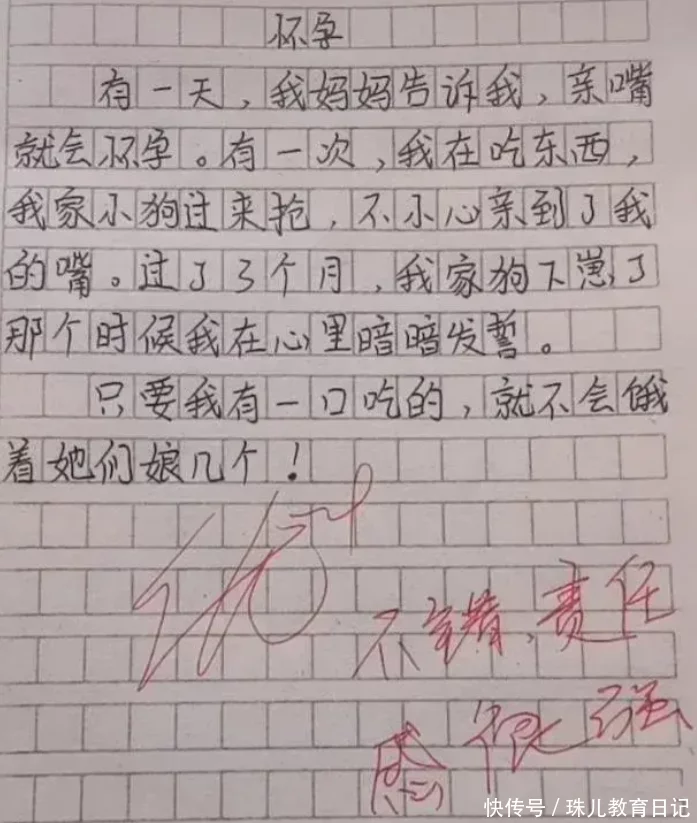 怀孕
有一天，我妈妈告诉我，亲嘴
就会怀孕。有一次，我在吃东西，
我家小狗过来抢，不小心亲到了我
的嘴。过了3个月，我家狗下崽了
那个时候我在心里暗暗发誓。
只要我有一口吃的，就不会饿
着她们娘几个！
不错，责任
感很强
快传号／珠儿教育日记